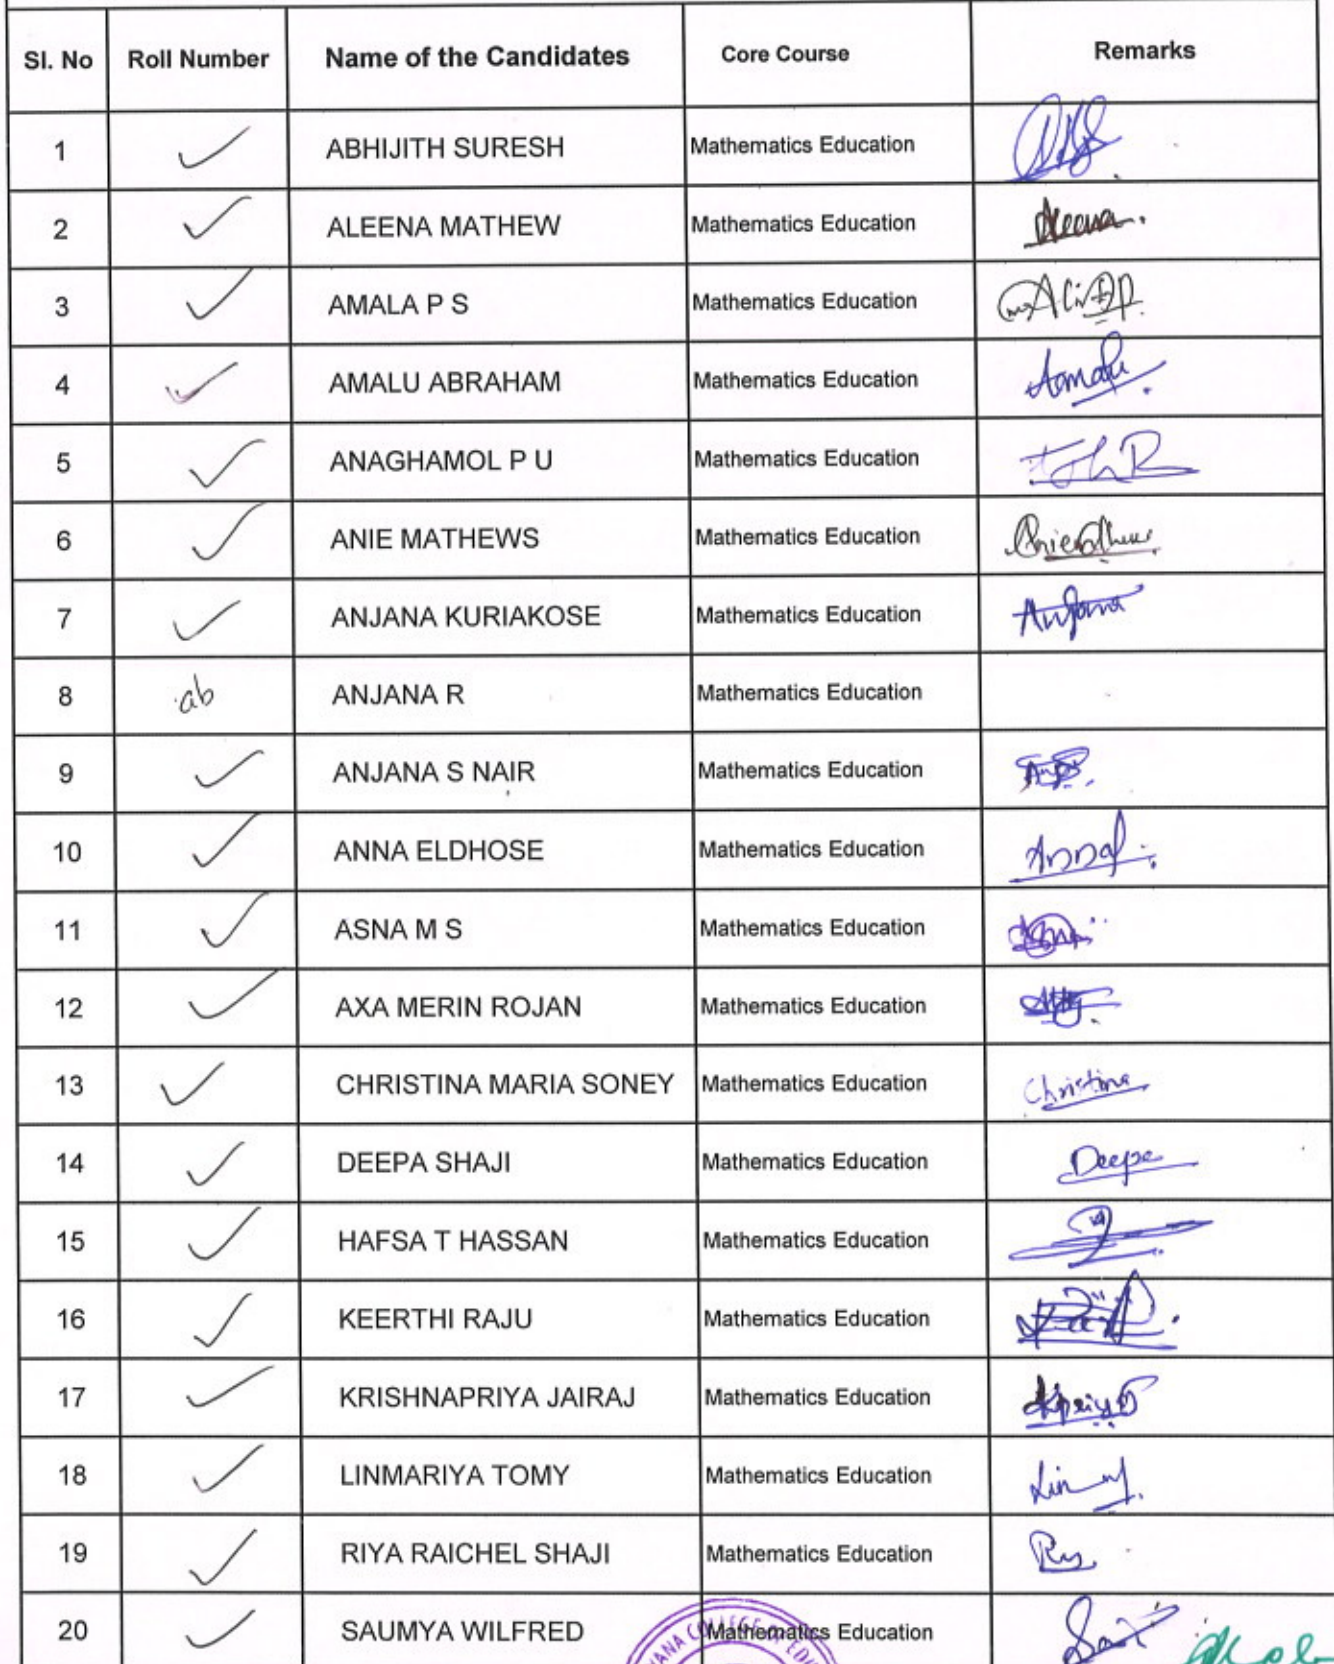 Sl. No Roll Number Name of the Candidates Core Course Remarks
1 ✓ ABHIJITH SURESH Mathematics Education
2 ✓ ALEENA MATHEW Mathematics Education Aleena
3 ✓ AMALA P S Mathematics Education
4 ✓ AMALU ABRAHAM Mathematics Education Amalu
5 ✓ ANAGHAMOL P U Mathematics Education
6 ✓ ANIE MATHEWS Mathematics Education
7 ✓ ANJANA KURIAKOSE Mathematics Education Anjana
8 ab ANJANA R Mathematics Education
9 ✓ ANJANA S NAIR Mathematics Education
10 ✓ ANNA ELDHOSE Mathematics Education
11 ✓ ASNA M S Mathematics Education
12 ✓ AXA MERIN ROJAN Mathematics Education
13 ✓ CHRISTINA MARIA SONEY Mathematics Education Christina
14 ✓ DEEPA SHAJI Mathematics Education Deepa
15 ✓ HAFSA T HASSAN Mathematics Education
16 ✓ KEERTHI RAJU Mathematics Education
17 ✓ KRISHNAPRIYA JAIRAJ Mathematics Education
18 ✓ LINMARIYA TOMY Mathematics Education
19 ✓ RIYA RAICHEL SHAJI Mathematics Education
20 ✓ SAUMYA WILFRED Mathematics Education
COLLEGE OF